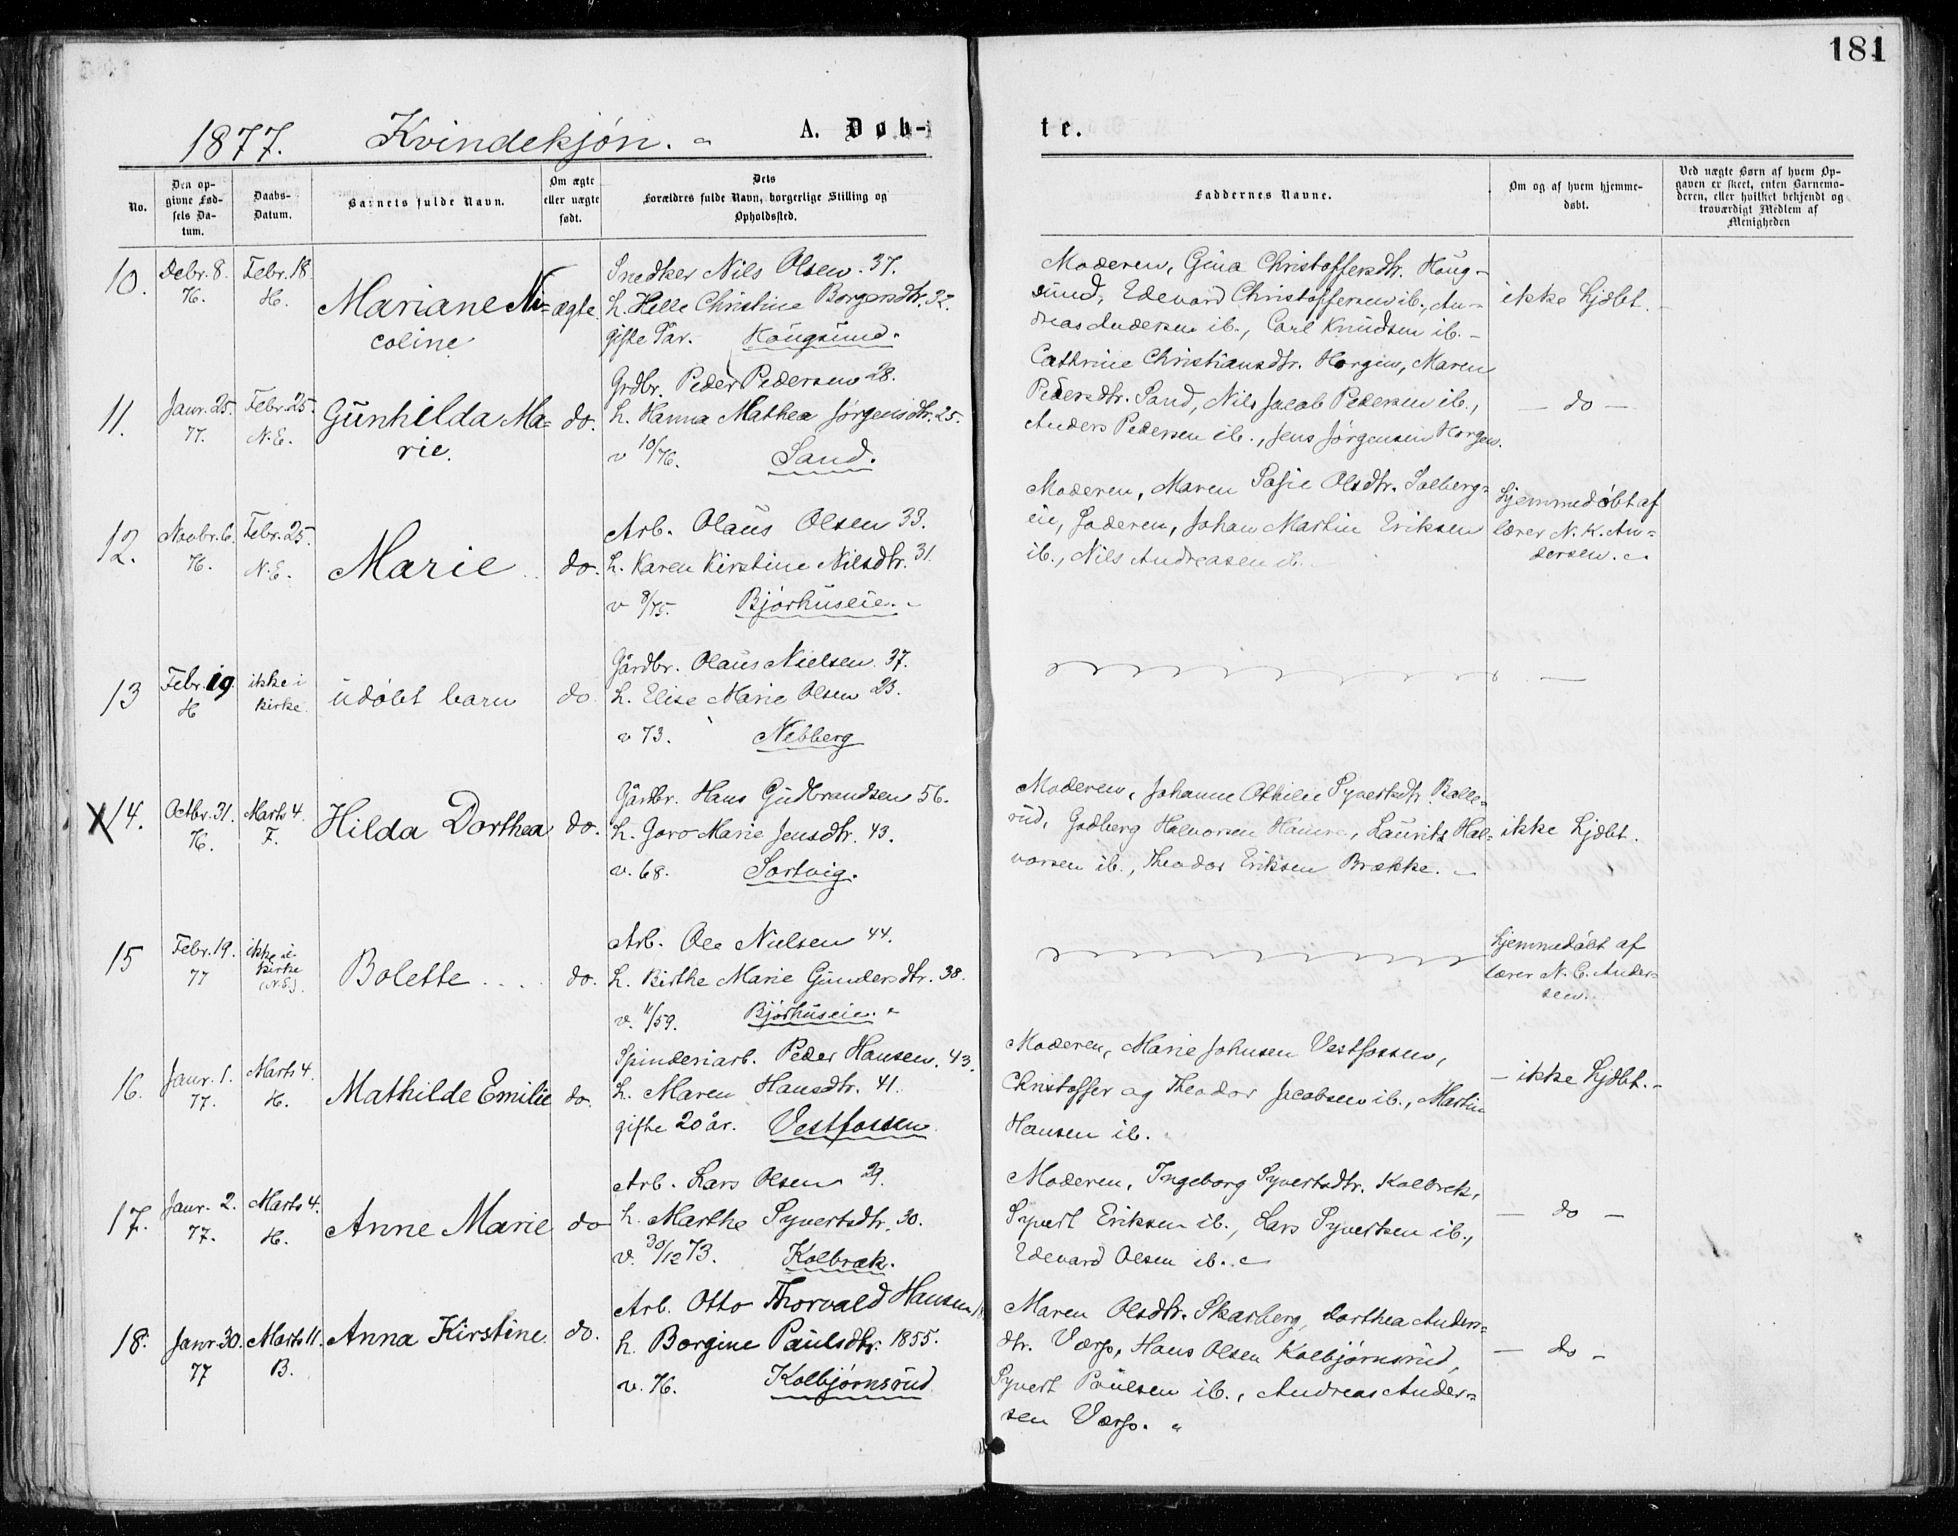 181
1877. Kvindekjøn.
A. Døb-
te.
No.
Den op-
givne Fød-
sels Da-
tum.
Daabs-
Datum.
Barnets fulde Navn.
Om ægte
eller uægte
født.
Dets
Forældres fulde Navn, borgerlige Stilling og
Opholdssted.
Faddernes Navne.
Om og af hvem hjemme-
døbt.
Ved uægte Børn af hvem Op-
gaven er skeet, enten Barnemo-
deren, eller hvilket bekjendt og
troværdigt Medlem af
Menigheden
10.
Debr. 8.
76.
Febr. 18.
H.
Mariane Ni-
coline
ægte
Snedker Nils Olsen. 37.
h. Helle Christine Borgersdtr. 32.
gifte Par. Hougsund.
Moderen, Gina Christoffersdtr. Houg-
sund, Edevard Christoffersen ib., An-
dreas Andersen ib., Carl Knudsen ib. -
ikke hjdbt.
11.
Janr. 25.
77.
Febr. 25.
N.E.
Gunhilda Ma-
rie.
do.
Grdbr. Peder Pedersen 28.
h. Hanna Mathea Jørgensdtr. 25.
v 10/76. Sand.
Cathrine Christiansdtr. Horgen, Maren
Pedersdtr. Sand, Nils Jacob Pedersen ib.,
Anders Pedersen ib., Jens Jørgensen Horgen.
- do -
12.
Novbr. 6.
76.
Febr. 25.
N.E.
Marie
do.
Arb. Olaus Olsen 33.
h. Karen Kirstine Nilsdtr. 31
v 8/75. Bjørhuseie.
Moderen, Maren Sofie Olsdtr. Solberg-
eie, Faderen, Johan Martin Eriksen
ib., Nils Andreasen ib.
hjemmedøbt af
lærer N. K. An-
dersen.
13
Febr. 19.
H
ikke i
kirke
udøbt barn
do
Gårdbr. Olaus Nielsen. 37.
h. Elise Marie Olsen 23.
v 73. Nebberg
X 14.
Octbr. 31.
76.
Marts 4.
F.
Hilda Dorthea
do.
Gårdbr. Hans Gudbrandsen 56.
h. Goro Marie Jensdtr. 43.
v. 68. Sortvig.
Moderen, Johanne Othilie Syvertsdtr. Bolle-
rud, Gudberg Halvorsen, Laurits Hal-
vorsen ib., Theodor Eriksen Brække.
ikke hjdbt.
15
Febr. 19.
77
ikke i
kirke
(N.E.)
Bolette
do.
Arb. Ole Nielsen 44.
h. Birthe Marie Gundersdtr. 38.
v. 11/59. Bjørhuseie.
hjemmedøbt af
lærer N. C. Ander-
sen.
16.
Janr. 1.
77.
Marts 4.
H.
Mathilde Emilie
do.
Spinderiarb. Peder Hansen. 43.
h. Maren Hansdtr. 41.
gifte 20 år. Vestfossen
Moderen, Marie Johnsen Vestfossen,
Christoffer og Theodor Jacobsen ib., Martin
Hansen ib.
- ikke hjdbt. -
17.
Janr. 2.
77.
Marts 4.
H.
Anne Marie
do
Arb. Lars Olsen 29.
h. Marthe Syvertsdtr. 30.
v. 30/12 73. Kolbræk.
Moderen, Ingeborg Syvertsdtr. Kolbrek,
Syvert Eriksen ib., Lars Syvertsen ib.,
Edevard Olsen ib.
- do -
18.
Janr. 30.
77
Marts 11.
B.
Anna Kirstine
do.
Arb. Otto Thorvald Hansen
h. Borgine Paulsdtr. 1855.
v. 76. Kolbjørnsrud
Maren Olsdtr. Skarberg, Dorthea Anders-
dtr. Værp, Hans Olsen Kolbjørnsrud,
Syvert Poulsen ib., Andreas Ander-
sen Værp.
- do -